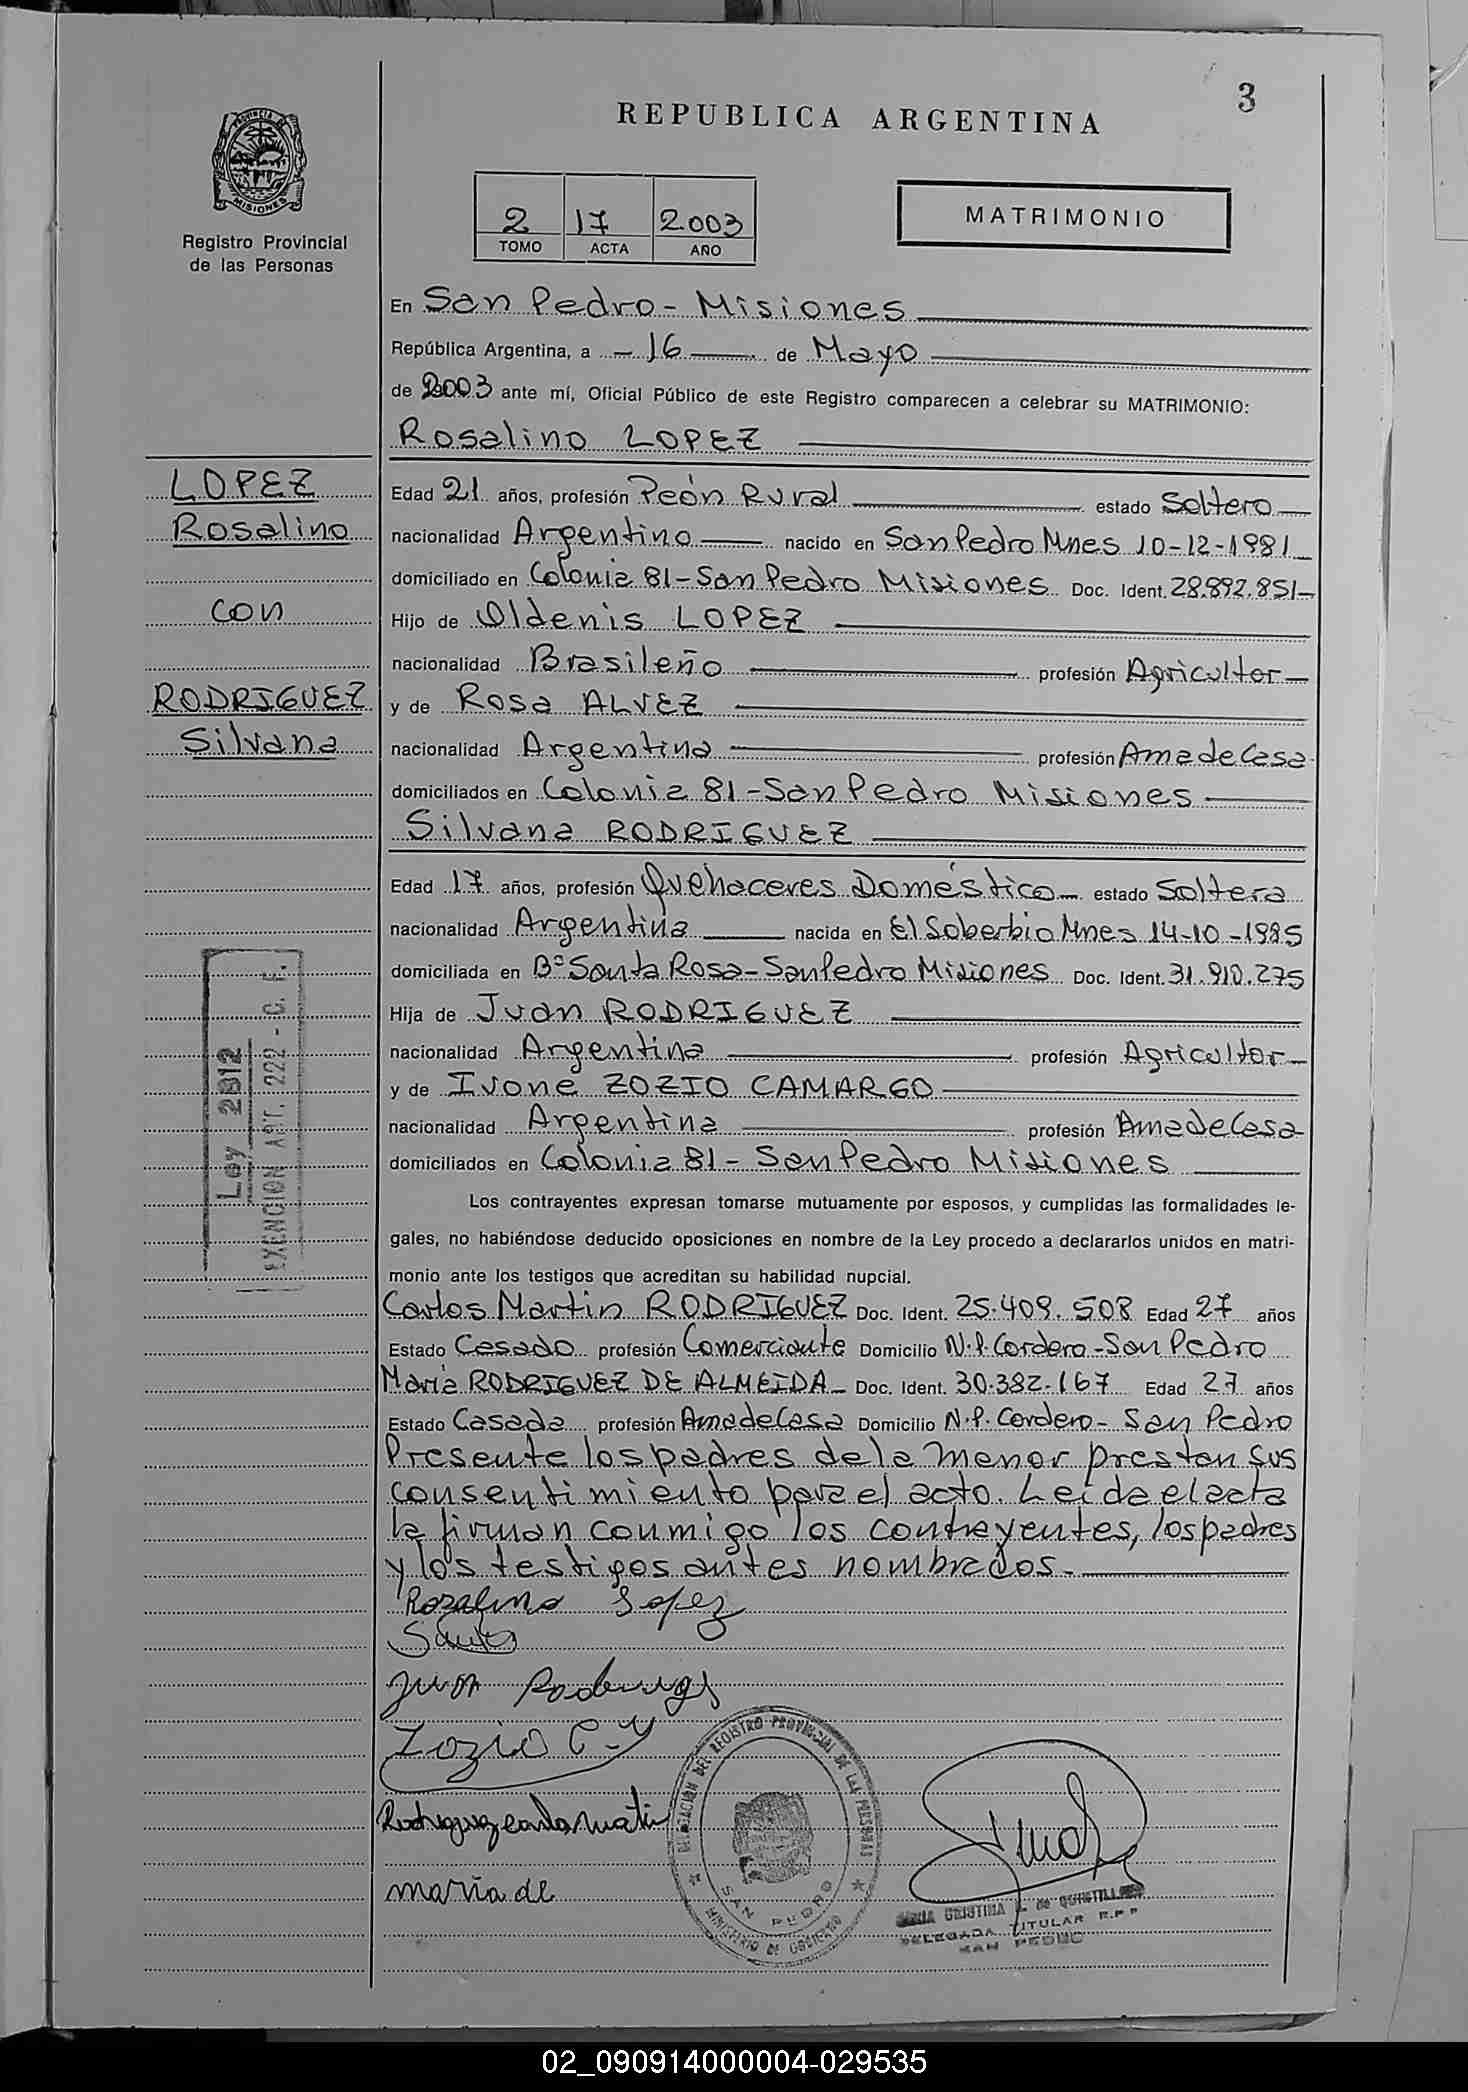 3
REPUBLICA ARGENTINA
PROVINCIA DE
MISIONES
Registro Provincial
de las Personas
2 17 2003
TOMO ACTA AÑO
MATRIMONIO
En San Pedro - Misiones
República Argentina, a - 16 - de Mayo
de 2003 ante mí, Oficial Público de este Registro comparecen a celebrar su MATRIMONIO:
Rosalino LOPEZ
LOPEZ
Rosalino
con
RODRIGUEZ
Silvana
Edad 21 años, profesión Peón Rural estado Soltero
nacionalidad Argentino nacido en San Pedro Mnes 10-12-1981
domiciliado en Colonia 81 - San Pedro Misiones Doc. Ident. 28.892.851-
Hijo de Oldenis LOPEZ
nacionalidad Brasileño profesión Agricultor
y de Rosa ALVEZ
nacionalidad Argentina profesión Ama de Casa
domiciliados en Colonia 81 - San Pedro Misiones
Silvana RODRIGUEZ
Edad 17 años, profesión Quehaceres Doméstico estado Soltera
nacionalidad Argentina nacida en El Soberbio Mnes 14-10-1985
domiciliada en B° Santa Rosa - San Pedro Misiones Doc. Ident. 31.910.275
Hija de Juan RODRIGUEZ
nacionalidad Argentina profesión Agricultor
y de Ivone ZOZIO CAMARGO
nacionalidad Argentina profesión Ama de Casa
domiciliados en Colonia 81 - San Pedro Misiones
Ley 2812
EXENCION ART. 222 - C. F.
Los contrayentes expresan tomarse mutuamente por esposos, y cumplidas las formalidades le-
gales, no habiéndose deducido oposiciones en nombre de la Ley procedo a declararlos unidos en matri-
monio ante los testigos que acreditan su habilidad nupcial.
Carlos Martin RODRIGUEZ Doc. Ident. 25.409.508 Edad 27 años
Estado Casado profesión Comerciante Domicilio N.P. Cordero - San Pedro
Maria RODRIGUEZ DE ALMEIDA - Doc. Ident. 30.382.167 Edad 27 años
Estado Casada profesión Ama de Casa Domicilio N.P. Cordero - San Pedro
Presente los padres de la menor prestan sus
consentimiento para el acto. Leída el acta
la firman conmigo los contrayentes, los padres
y los testigos antes nombrados.
Rozalino Lopez
Juan
Zozio C. Y
Rodriguez
maria de
DELEGACION DEL REGISTRO PROVINCIAL DE LAS PERSONAS
SAN PEDRO
MINISTERIO DE GOBIERNO
CRISTINA
DELEGADA TITULAR R.P.P
SAN PEDRO
02_090914000004-029535